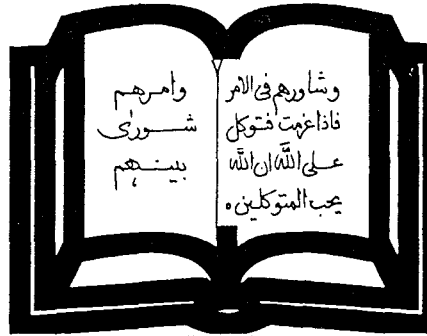 وشاورهم فى الامر
فاذا عزمت فتوكل
على الله ان الله
يحب المتوكلين ه
وامرهم
شورى
بينهم